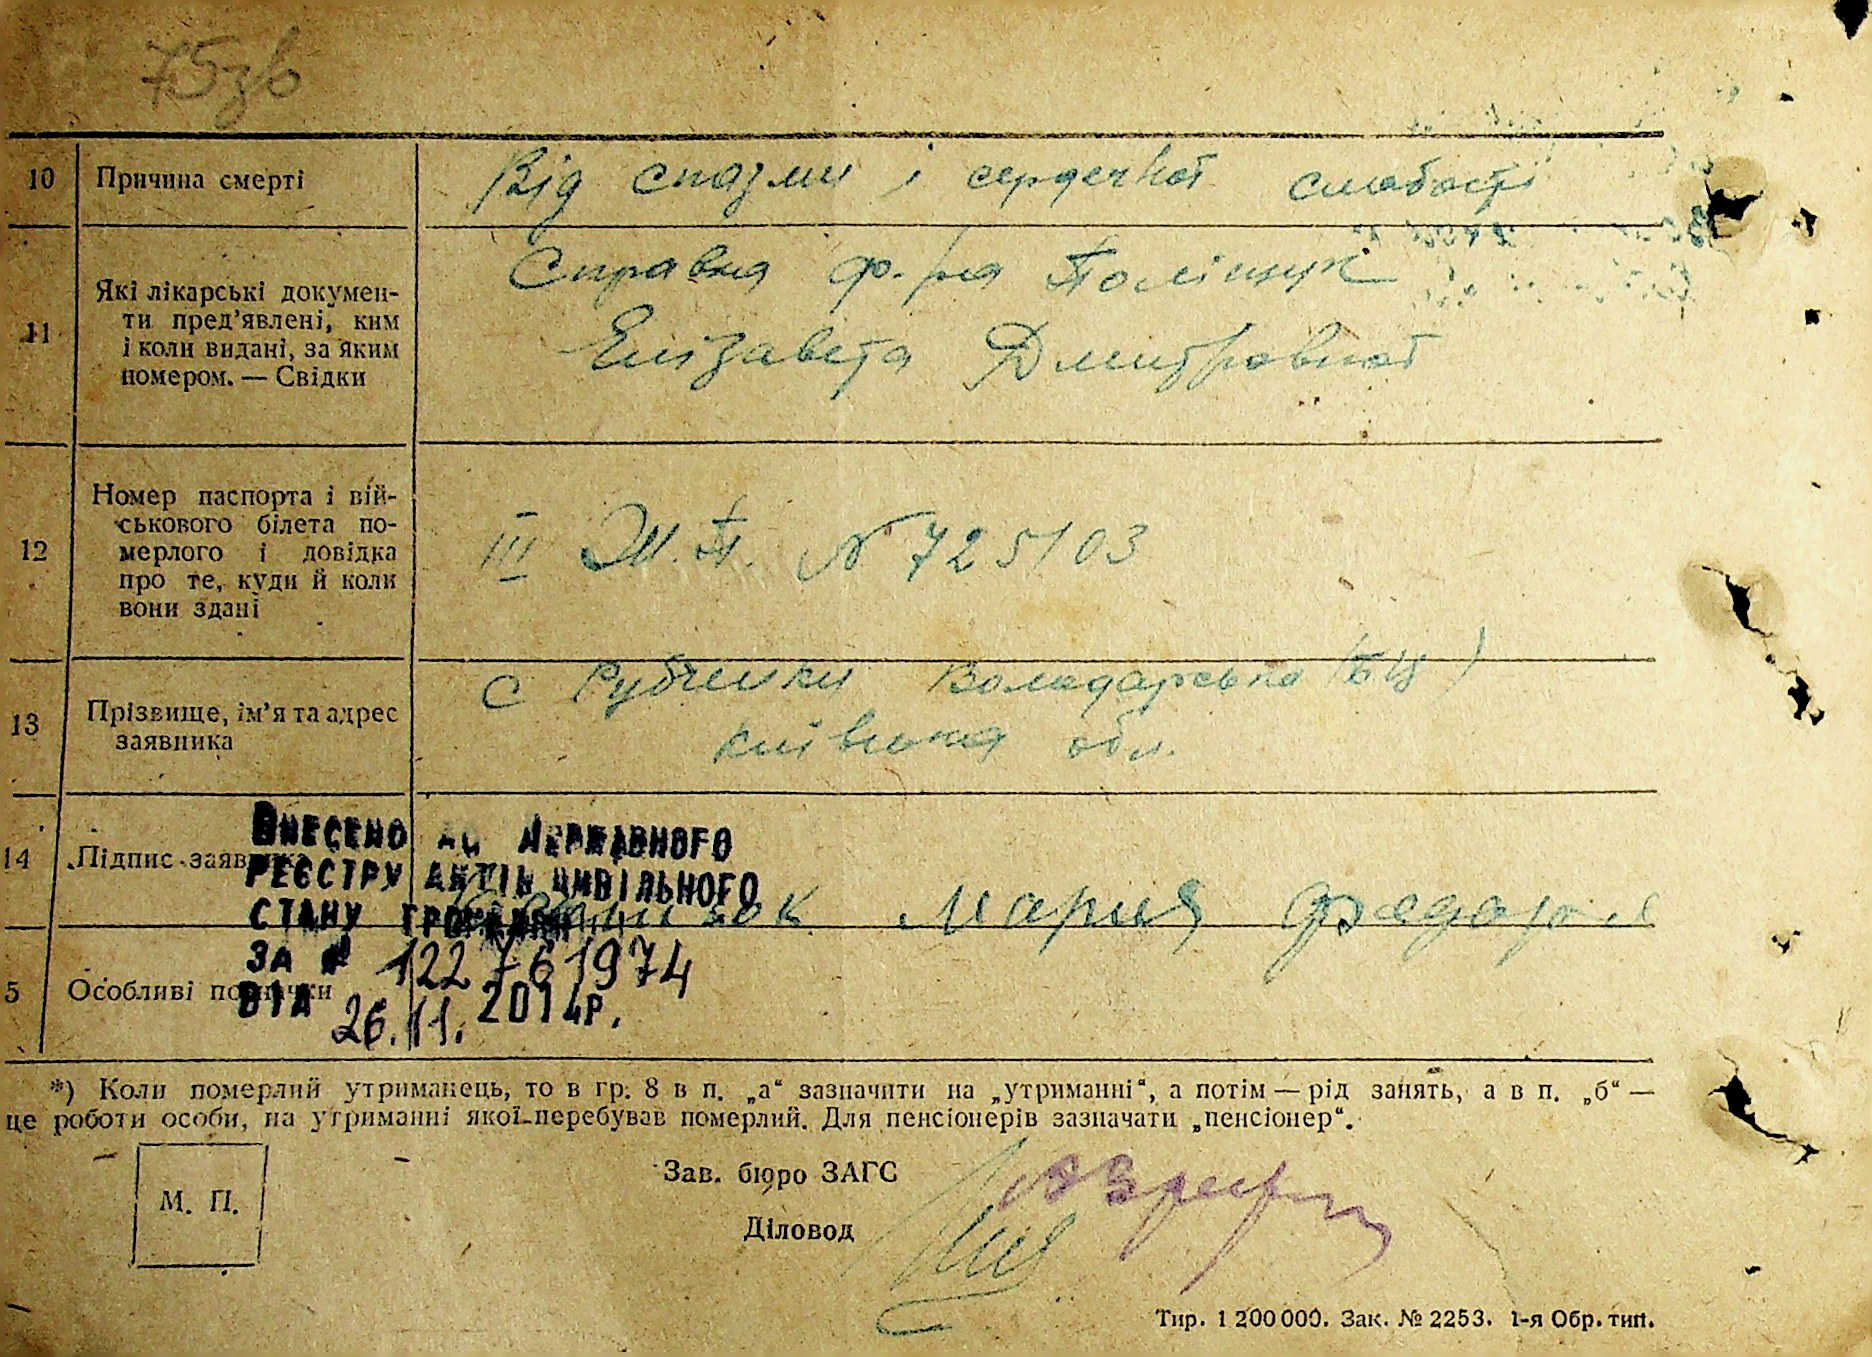 75зв
10 Причина смерті Від спазми і сердечної слабості
11 Які лікарські докумен-
ти пред’явлені, ким
і коли видані, за яким
номером. — Свідки
Справка Поліщук
Елізавета Дмитровної
12 Номер паспорта і вій-
ськового білета по-
мерлого і довідка
про те, куди й коли
вони здані
III № 725103
13 Прізвище, ім’я та адрес
заявника
с Рубченки Володарська (БЦ)
київська обл.
14 Підпис заявника Мария
5 Особливі помітки
Внесено до Державного
реєстру актів цивільного
стану громадян
за № 122761974
від 26.11.2014р.
*) Коли померлий утриманець, то в гр. 8 в п. „а“ зазначити на „утриманні“, а потім — рід занять, а в п. „б“ —
це роботи особи, на утриманні якої перебував померлий. Для пенсіонерів зазначати „пенсіонер“.
М. П.
Зав. бюро ЗАГС
Діловод
Тир. 1 200 000. Зак. № 2253. 1-я Обр. тип.